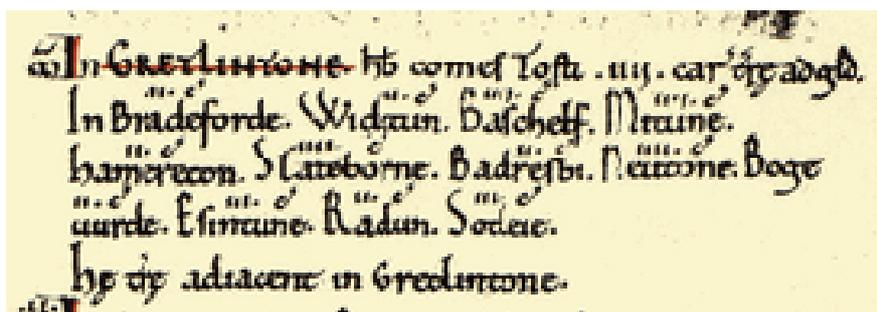 In GRETLINTONE. hb comes Tosti .iiij. car' træ ad gld.
In Bradeforde. Widitun. Baschelf. Mitune.
Hamereton. Slateborne. Badresbi. Neutone. Boge
uurde. Esintune. Radun. Sotleie.
he træ adiacent in Gretlintone.